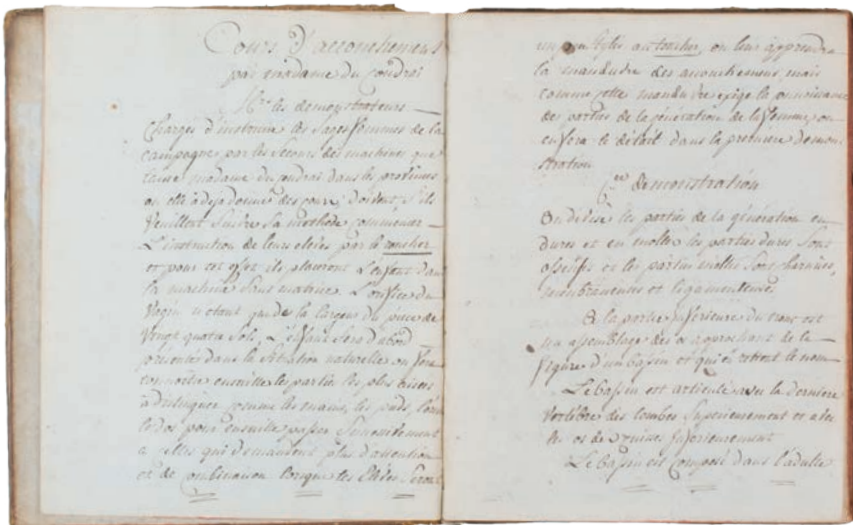 Cours d'accouchement
par madame du Coudrai
Mrs les demonstrateurs
Chargés d'instruire les Sages femmes de la
Campagne par les Secours des machines que
laisse madame du Coudrai dans les provinces
ou elle a deja donné des cours, doivent S'ils
veuillent Suivre Sa methode commencer
L'instruction de leurs eleves par le toucher
et pour cet effet ils placeront L'enfant dans
la machine Sans matrice. L'orifice du
Vagin n'etant que de la largeur du piece de
Vingt quatre Sols, L'enfant Sera d'abord
présenté dans la Situation naturelle on fera
connoitre ensuitte les parties les plus aisées
a distinguer comme les mains, les pieds,
le dos pour ensuitte passer Successivement
a celles qui demandent plus d'attention
et de combinaison lorsque les Eleves Seront
un peu Stylés au toucher, on leur apprendra
la manœuvre des accouchemens, mais
comme cette manœuvre exige la connoissance
des parties de la génération de la femme, on
en fera le détail dans la premiere demon
stration
1ere demonstration
On divise les parties de la génération en
dures et en molles les parties dures Sont
osseuses et les parties molles Sont charnües,
membraneuses et ligamenteuses
A la partie inferieure du tronc est
un assemblage des os approchant de la
figure d'un bassin et qui en retient le nom
Le bassin est articulé avec la derniere
Vertebre des lombes Superieurement et avec
les os des cuisses inferieurement
Le bassin est composé dans l'adulte